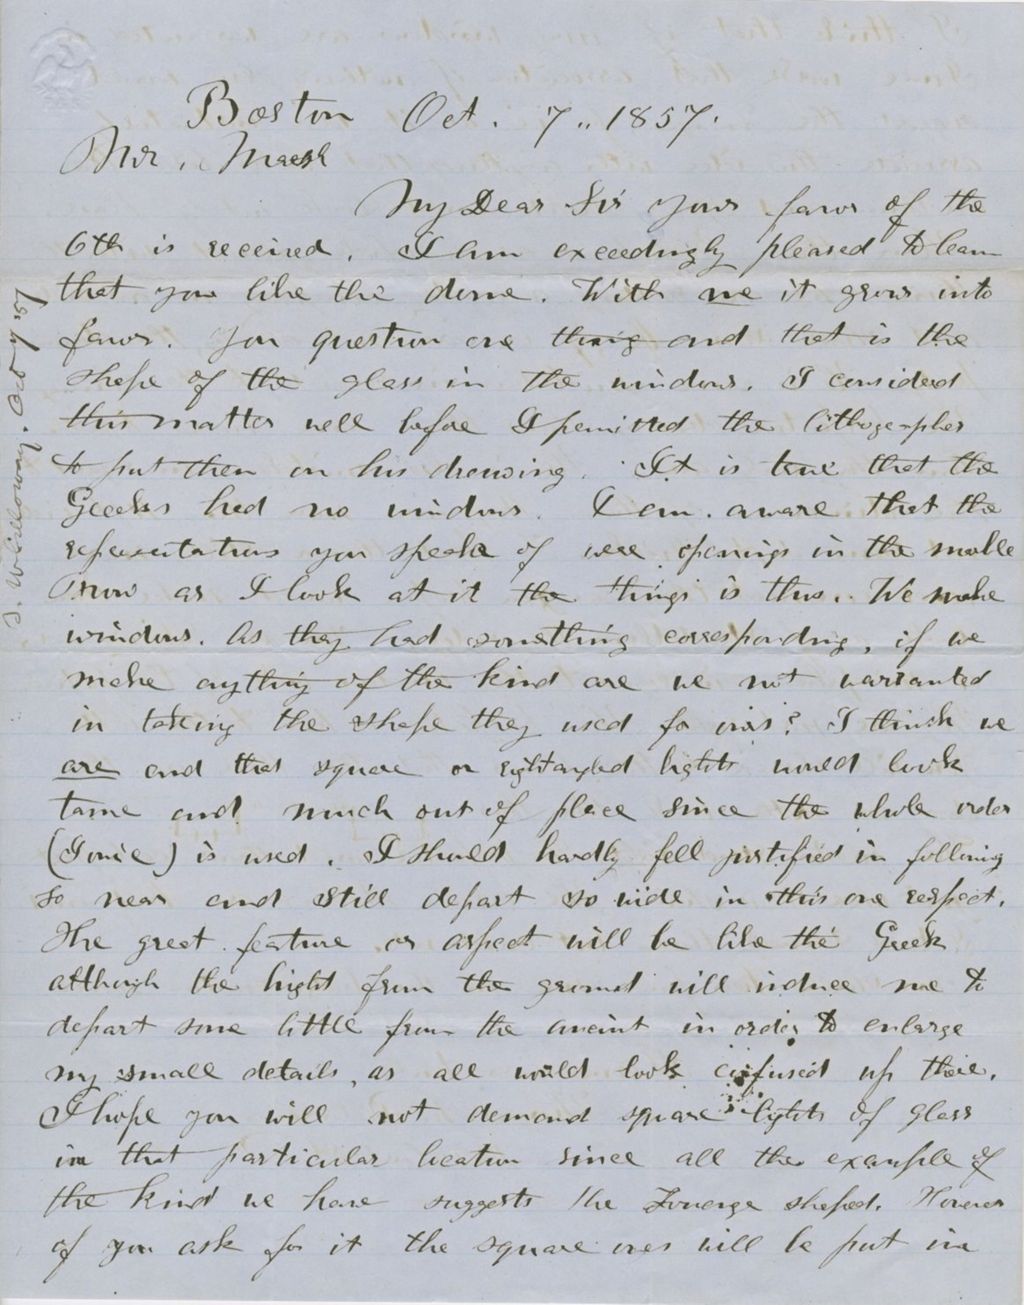 Boston Oct. 7,, 1857.
Mr. Marsh
My Dear Sir your favor of the
6th is received. I am exceedingly pleased to learn
that you like the dome. With me it grows into
favor. You question one thing and that is the
shape of the glass in the windows. I considered
this matter well before I permitted the lithographer
to put them on his drawing. It is true that the
Greeks had no windows. I am aware that the
representations you speak of were openings in the marble
Now as I look at it the things is thus. We make
windows. As they had something corresponding, if we
make anything of the kind are we not warranted
in taking the shape they used for ours? I think we
are and that square or rightangled lights would look
tame and much out of place since the whole order
(Ionic) is used. I should hardly fell justified in following
so near and still depart so wide in this one respect.
The great feature or aspect will be like the Greek
although the hight from the ground will induce me to
depart some little from the ancient in order to enlarge
my small details, as all would look confused up there.
I hope you will not demand square lights of glass
in that particular location since all the example of
the kind we have suggests the shaped. However
if you ask for it the square ones will be put in
S. Willoway. Oct 7/57